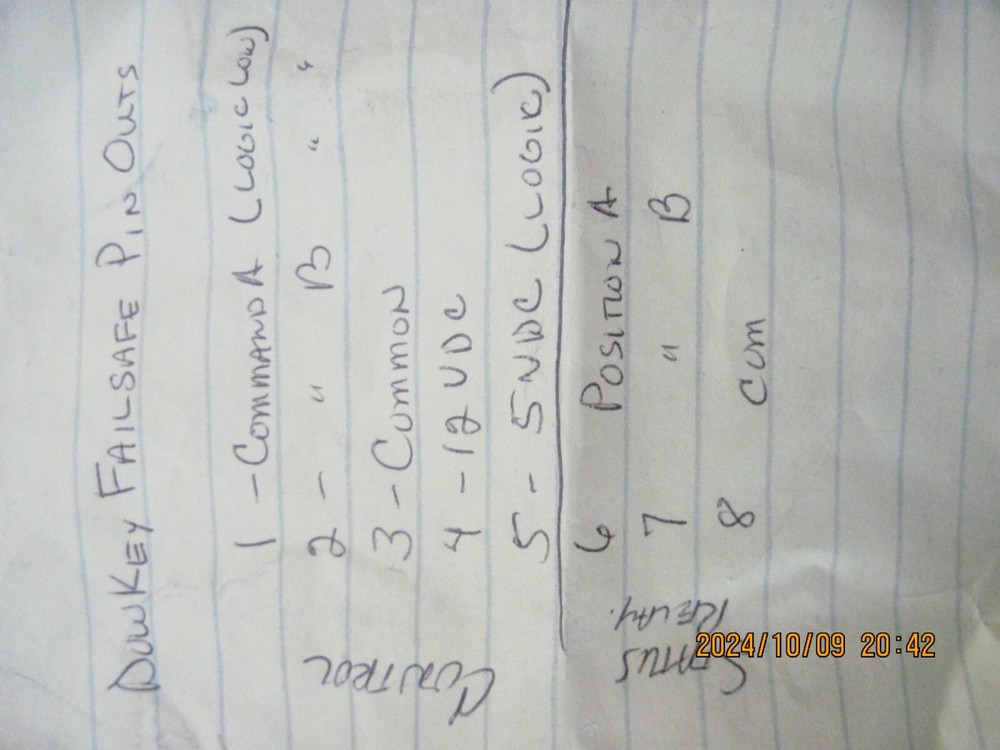 DOWKEY FAILSAFE PIN OUTS
CONTROL
1 - COMMAND A (LOGIC LOW)
2 - " B " "
3 - COMMON
4 - 12 VDC
5 - 5 VDC (LOGIC)
STATUS RELAY.
6 POSITION A
7 " B
8 COM
2024/10/09 20:42